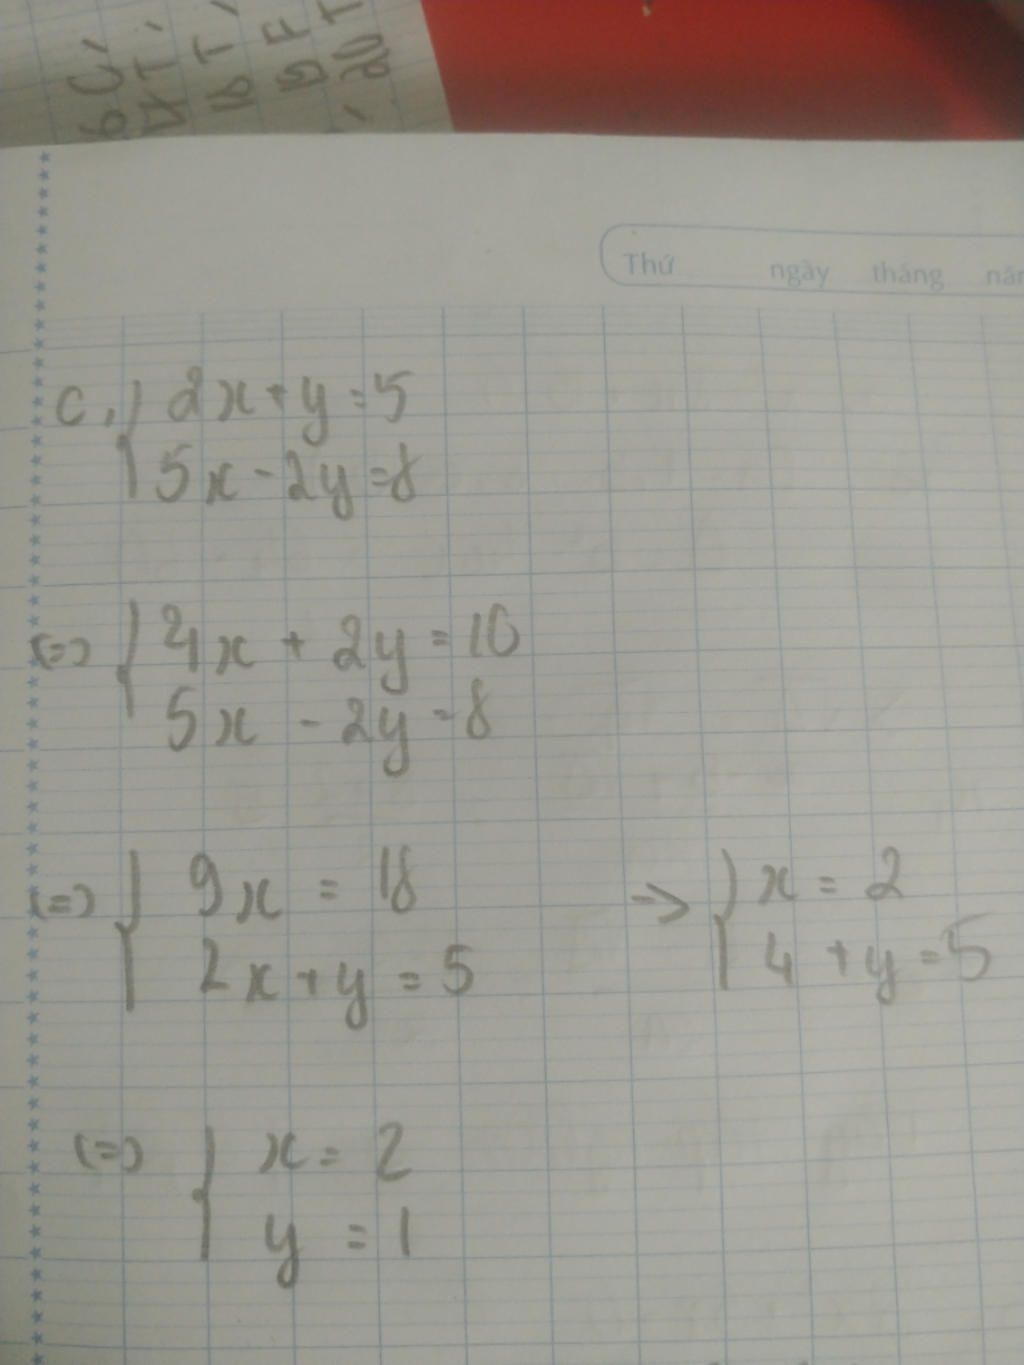 Thứ ngày tháng
c, { 2x + y = 5
5x - 2y = 8
<=> { 4x + 2y = 10
5x - 2y = 8
<=> { 9x = 18
2x + y = 5
-> { x = 2
4 + y = 5
<=> { x = 2
y = 1